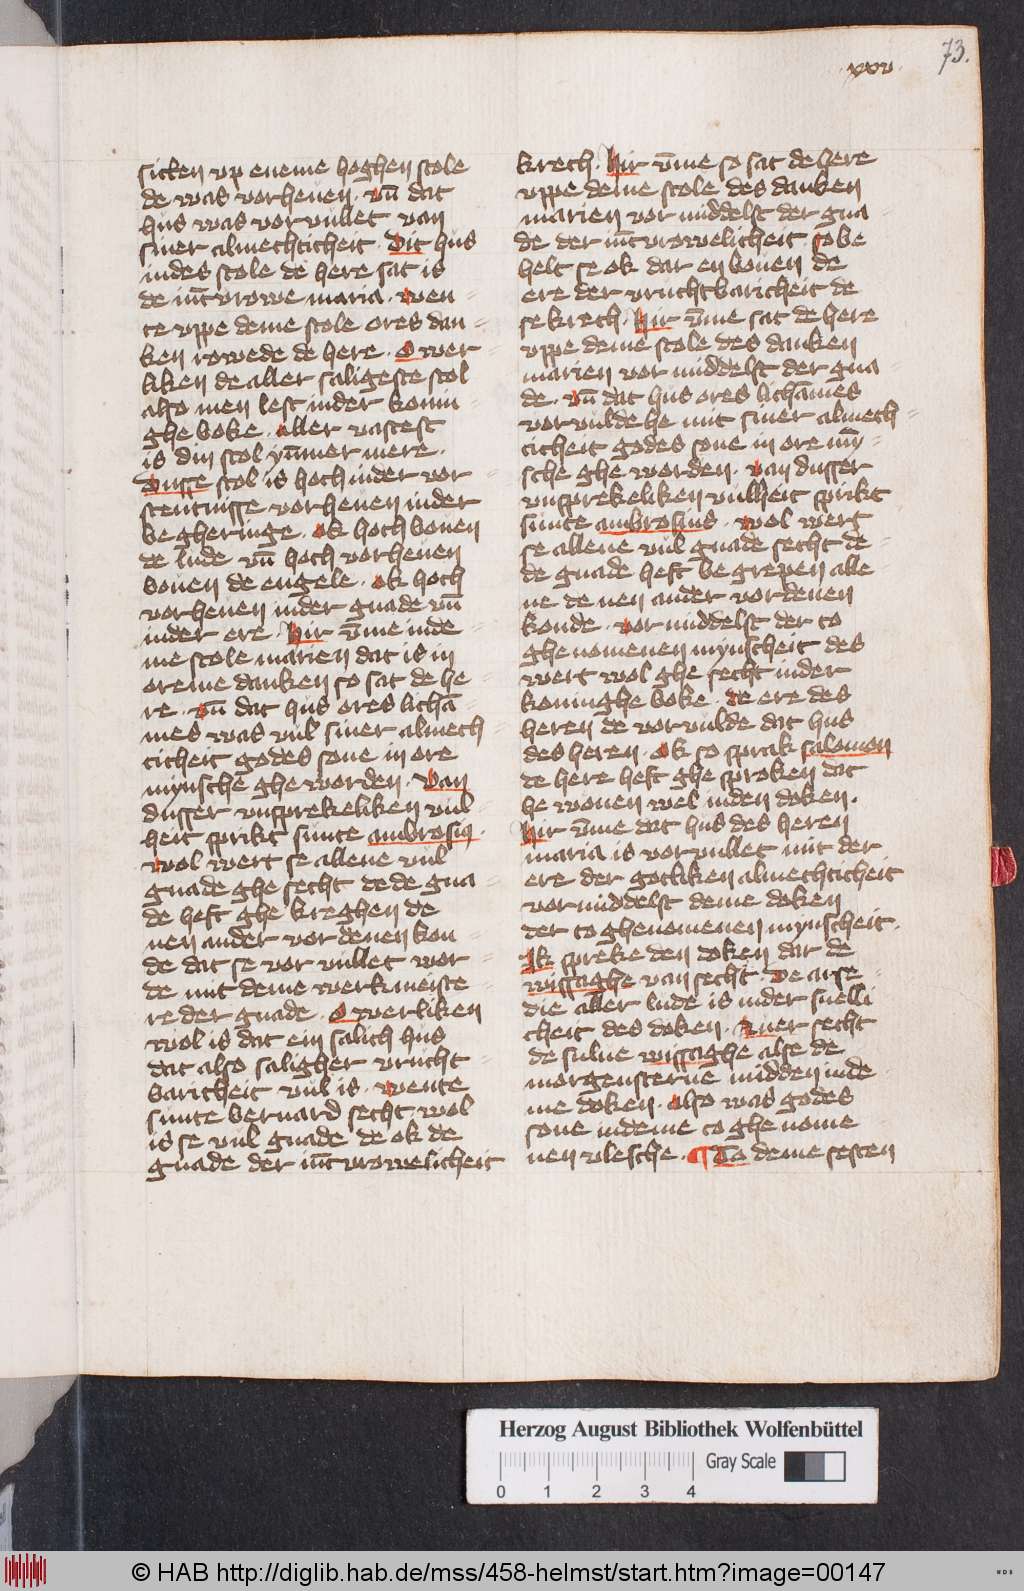 73.
xxv
sitten vp eneme hoghen stole
de was vorheuen. vn̄ dat
hus was vor vullet van
siner almechticheit. Dit hus
in des stole de here sat is
de iūt vrowe maria. wen-
te vppe deme stole ores dan-
ken rowede de here. O wer-
liken de aller saligeste stol
also men lest in der konin-
ghe boke. aller vastest
is din stol yūmer mere.
Dusse stol is hoch in der vor
stentnisse vorheuen in der
be gheringe. ok hoch bouen
de lude vn̄ hoch vorheuen
bouen de engele. ok hoch
vorheuen in der gnade vn̄
in der ere. Hir v̄me in de
me stole marien dat is in
oreme danken so sat de he-
re. vn̄ dat hus ores lichā-
mes was vul siner almech
ticheit godes sone in ore
mynsche ghe worden. Van
dusser vnsprekeliken vul-
heit sprikt sunte ambrosiꝰ.
wol wert se allene vul
gnade ghe secht de de gna-
de heft ghe kreghen de
nen ander vor denen kon-
de dat se vor vullet wor-
de mit deme werkmeiste
re der gnade. O werliken
wol is dat ein salich hus
dat also saligher vrucht-
baricheit vul is. wente
sunte bernard secht wol
is se vul gnade de ok de
gnade der iūt vrowelicheit
krech. Hir v̄me so sat de here
vppe deme stole des danken
marien vor middelst der gna-
de der iūt vrowelicheit. so be
helt se ok dar en bouen de
ere der vruchtbaricheit de
se krech. Hir v̄me sat de here
vppe deme stole des danken
marien vor middelst der gna-
de. vn̄ dat hus ores lichāmes
vor vulde he mit siner almech-
ticheit godes sone in ore mȳ-
sche ghe worden. van dusser
vnsprekeliken vulheit sprikt
sunte ambrosius. wol wert
se allene vul gnade secht de-
de gnade heft be grepen alle-
ne de nen ander vordenen
konde. vor middelst der to
ghenomenen mynscheit des
wert wol ghe secht in der
koninghe boke. de ere des
heren de vor vulde dat hus
des heren. ok so sprak salomon
de here heft ghe sproken dat
he wonen wel in den doken.
Hir v̄me dat hus des heren
maria is vor vullet mit der
ere der gotliken almechticheit
vor middelst deme doken
der to ghenomenen mynscheit.
Ik spreke den doken dar de
wissaghe van secht. De arse-
die aller lude is in der snelli
cheit des doken. Auer secht
de sulue wissaghe alse de
morgensterne midden in de-
me doken. also was godes
sone in deme to ghe nome
nen vlesche. ¶ To deme sesten
Herzog August Bibliothek Wolfenbüttel
Gray Scale
0 1 2 3 4
© HAB http://diglib.hab.de/mss/458-helmst/start.htm?image=00147